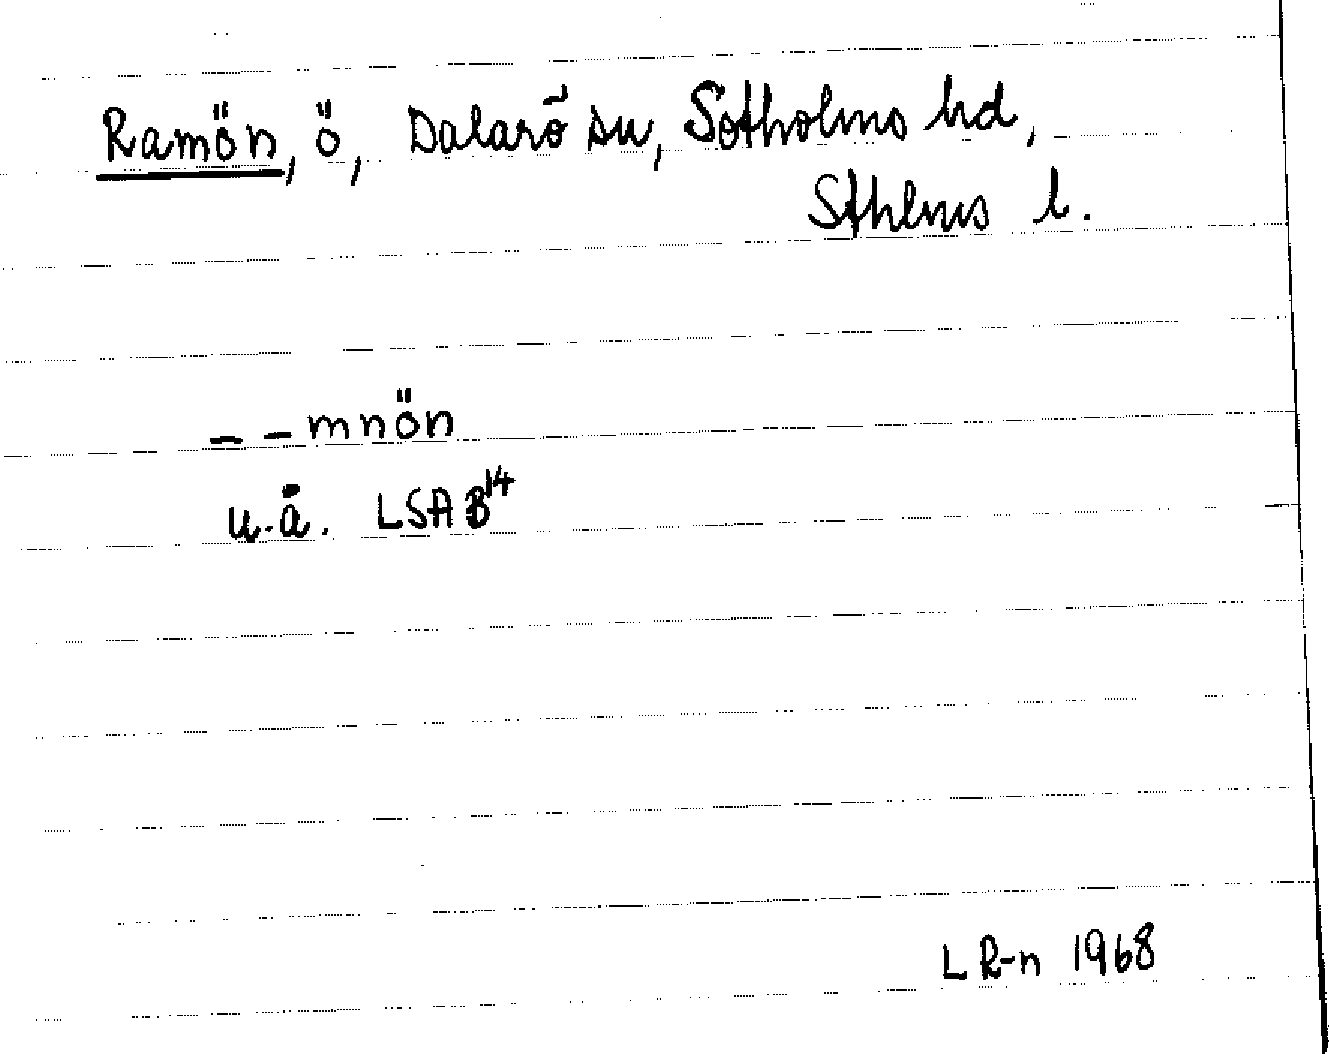 Ramön, ö, Dalarö su, Sotholms hd,
Sthlms l.
– – mnön
u.å. LSA B14
L R-n 1968